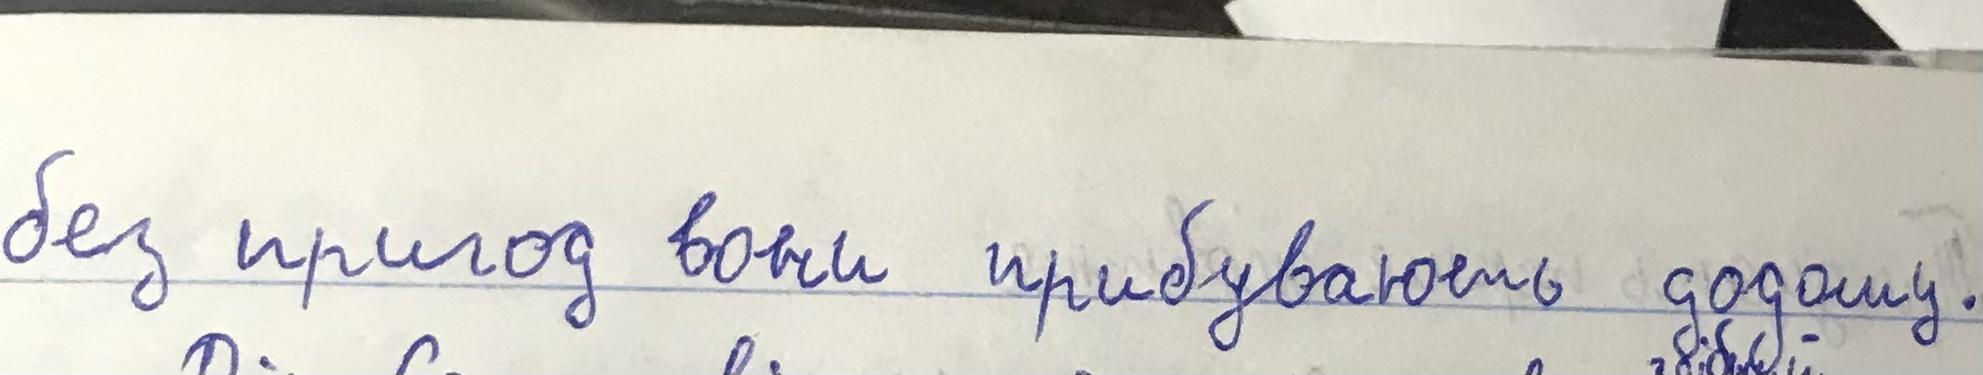 без пригод вони прибувають додому.